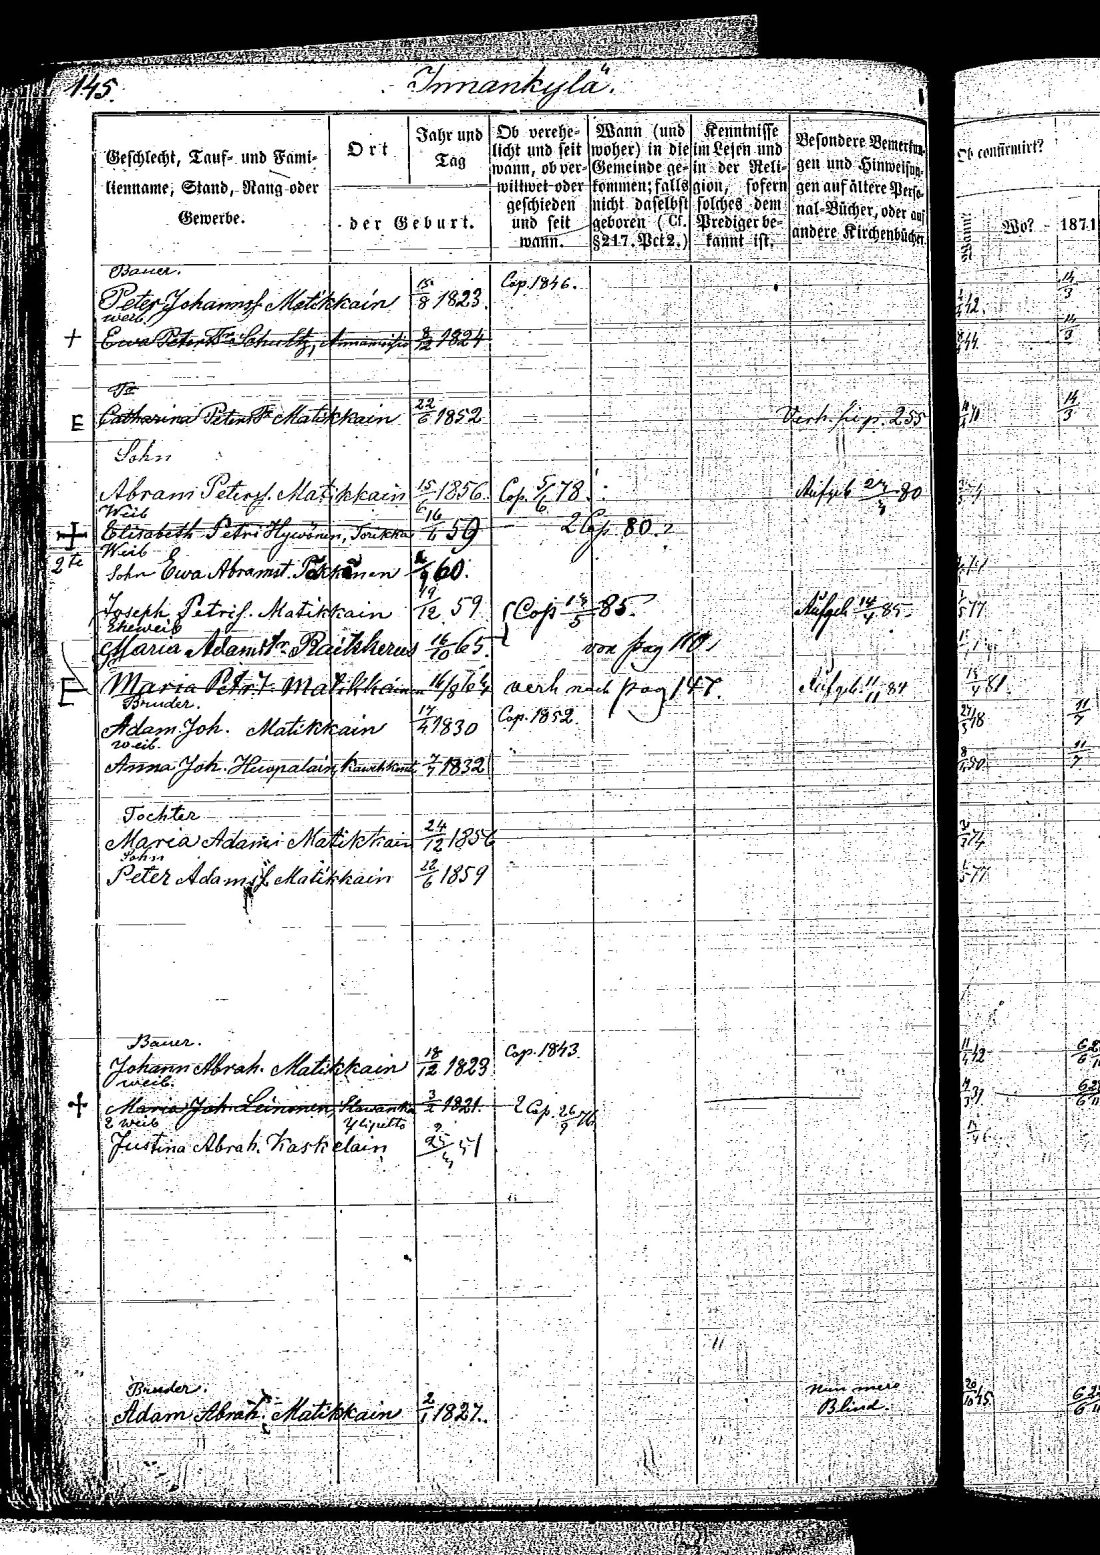 145.
Inmankylä.
Geschlecht, Tauf- und Fami-
lienname, Stand, Rang oder
Gewerbe.
Ort
Jahr und
Tag
der Geburt.
Ob verehe-
licht und seit
wann, ob ver-
wittwet oder
geschieden
und seit
wann.
Wann (und
woher) in die
Gemeinde ge-
kommen; falls
nicht daselbst
geboren (Cf.
§ 217. Pct 2.)
Kenntnisse
im Lesen und
in der Reli-
gion, sofern
solches dem
Prediger be-
kannt ist.
Besondere Bemerkun-
gen und Hinweisun-
gen auf ältere Perso-
nal-Bücher, oder auf
andere Kirchenbücher
Ob confirmirt?
Wann?
Wo?
1871
Bauer.
Peter Johannsf. Matikkain 15/8 1823. Cop. 1846. 14/3
weib.
+ Ewa Peters Tr. Schultz, 8/12 1824 14/3
Tr
E Catharina Peters Tr Matikkain 22/6 1852 Verh. 255 14/3
Sohn
Abram Petersf. Matikkain 15/6 1856. Cop. 5/6 78. Aufgeb 80
Weib
+ Elisabeth Petri Hywönen, 16/4 59 2 Cop. 80.
2te Weib
Ewa Abramst. 60.
Sohn
Joseph Petrif. Matikkain 19/12 59 Cop 85. Aufgeb 14/4 85.
Eheweib
Maria Adamstr. 16/10 65. von pag 110
E Maria Petr. T. Matikkain 16/8 64 verh nach pag 147. Aufgeb. 11/11 84 81.
Bruder.
Adam Joh. Matikkain 17/4 1830 Cop. 1852. 11/7
weib.
Anna Joh. Huopalain, 7/7 1832 11/7
Tochter
Maria Adami Matikkain 24/12 1856
Sohn
Peter Adamsf. Matikkain 22/6 1859
Bauer.
Johann Abrah. Matikkain 18/12 1823 Cop. 1843.
weib.
+ Maria Joh. Leinonen, Slawanka 3/2 1821. 2 Cop. 26/9 76
2 weib
Justina Abrah. Kaskelain 51
Bruder.
Adam Abrah. Matikkain 2/1 1827. nun mero
Blind.